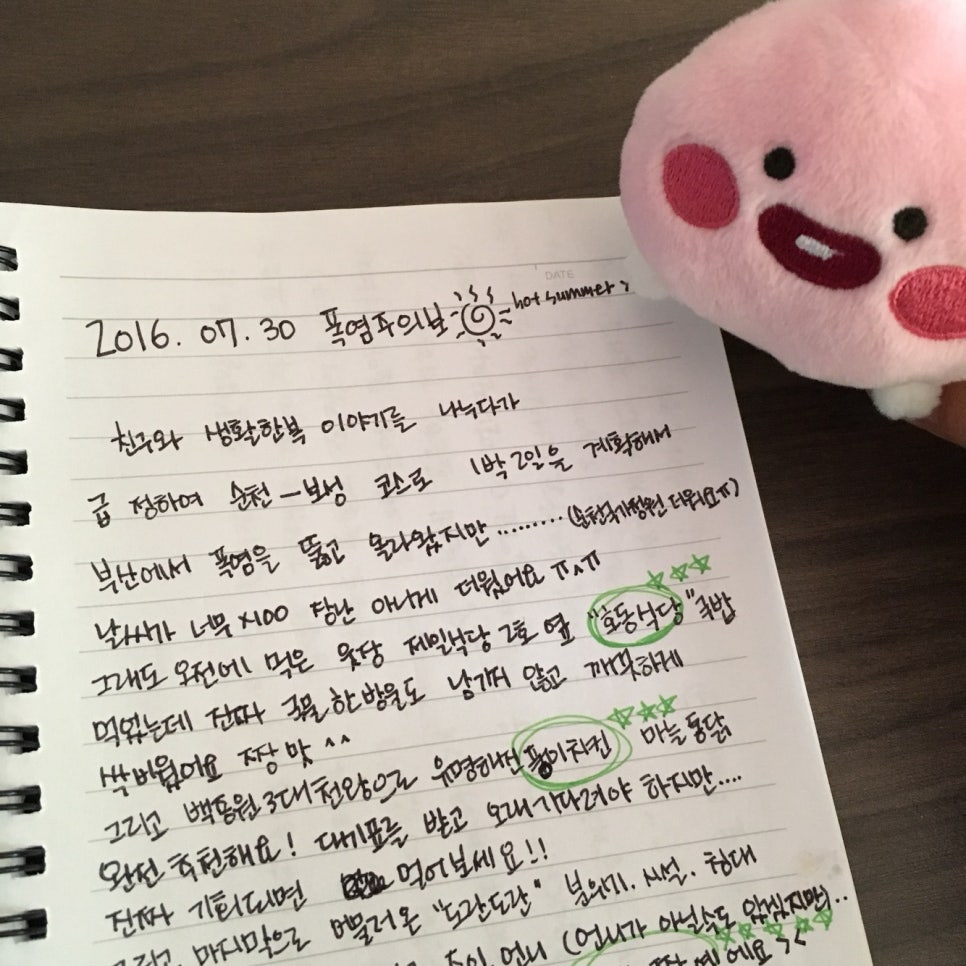 DATE
2016. 07. 30 폭염주의보 hot summer
친구와 생활한복 이야기를 나누다가
급 정하여 순천 - 보성 코스로 1박 2일을 계획해서
부산에서 폭염을 뚫고 올라왔지만 ......... (순천국가정원 더워요ㅠ)
날씨가 너무 x100 장난 아니게 더웠어요 ㅠ^ㅠ
그래도 오전에 먹은 웃장 제일식당 2호 옆 "호동식당" 국밥
먹었는데 진짜 국물 한방울도 남기지 않고 깨끗하게
싹 비웠어요 짱 맛 ^^
그리고 백종원 3대천왕으로 유명해진 풍미치킨 마늘통닭
완전 추천해요! 대기표를 받고 오래 기다려야 하지만....
진짜 기회되면 먹어보세요!!
그리고 마지막으로 머물러온 "도란도란" 분위기. 시설. 침대
주인 언니 (언니가 아닐수도 있겠지만)..
에요 > <